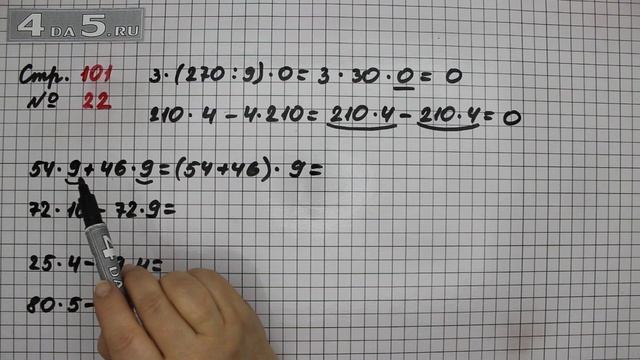 4 DA 5.RU
Стр. 101 3·(270:9)·0=3·30·0=0
№ 22 210·4-4·210=210·4-210·4=0
54·9+46·9=(54+46)·9=
72·10-72·9=
25·4-
80·5-
4 DA